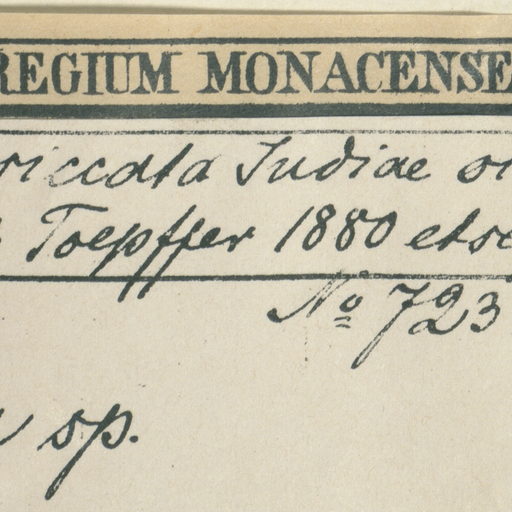 REGIUM MONACENSE
riccata Indiae or
Toepffer 1880 etse
No 723
sp.